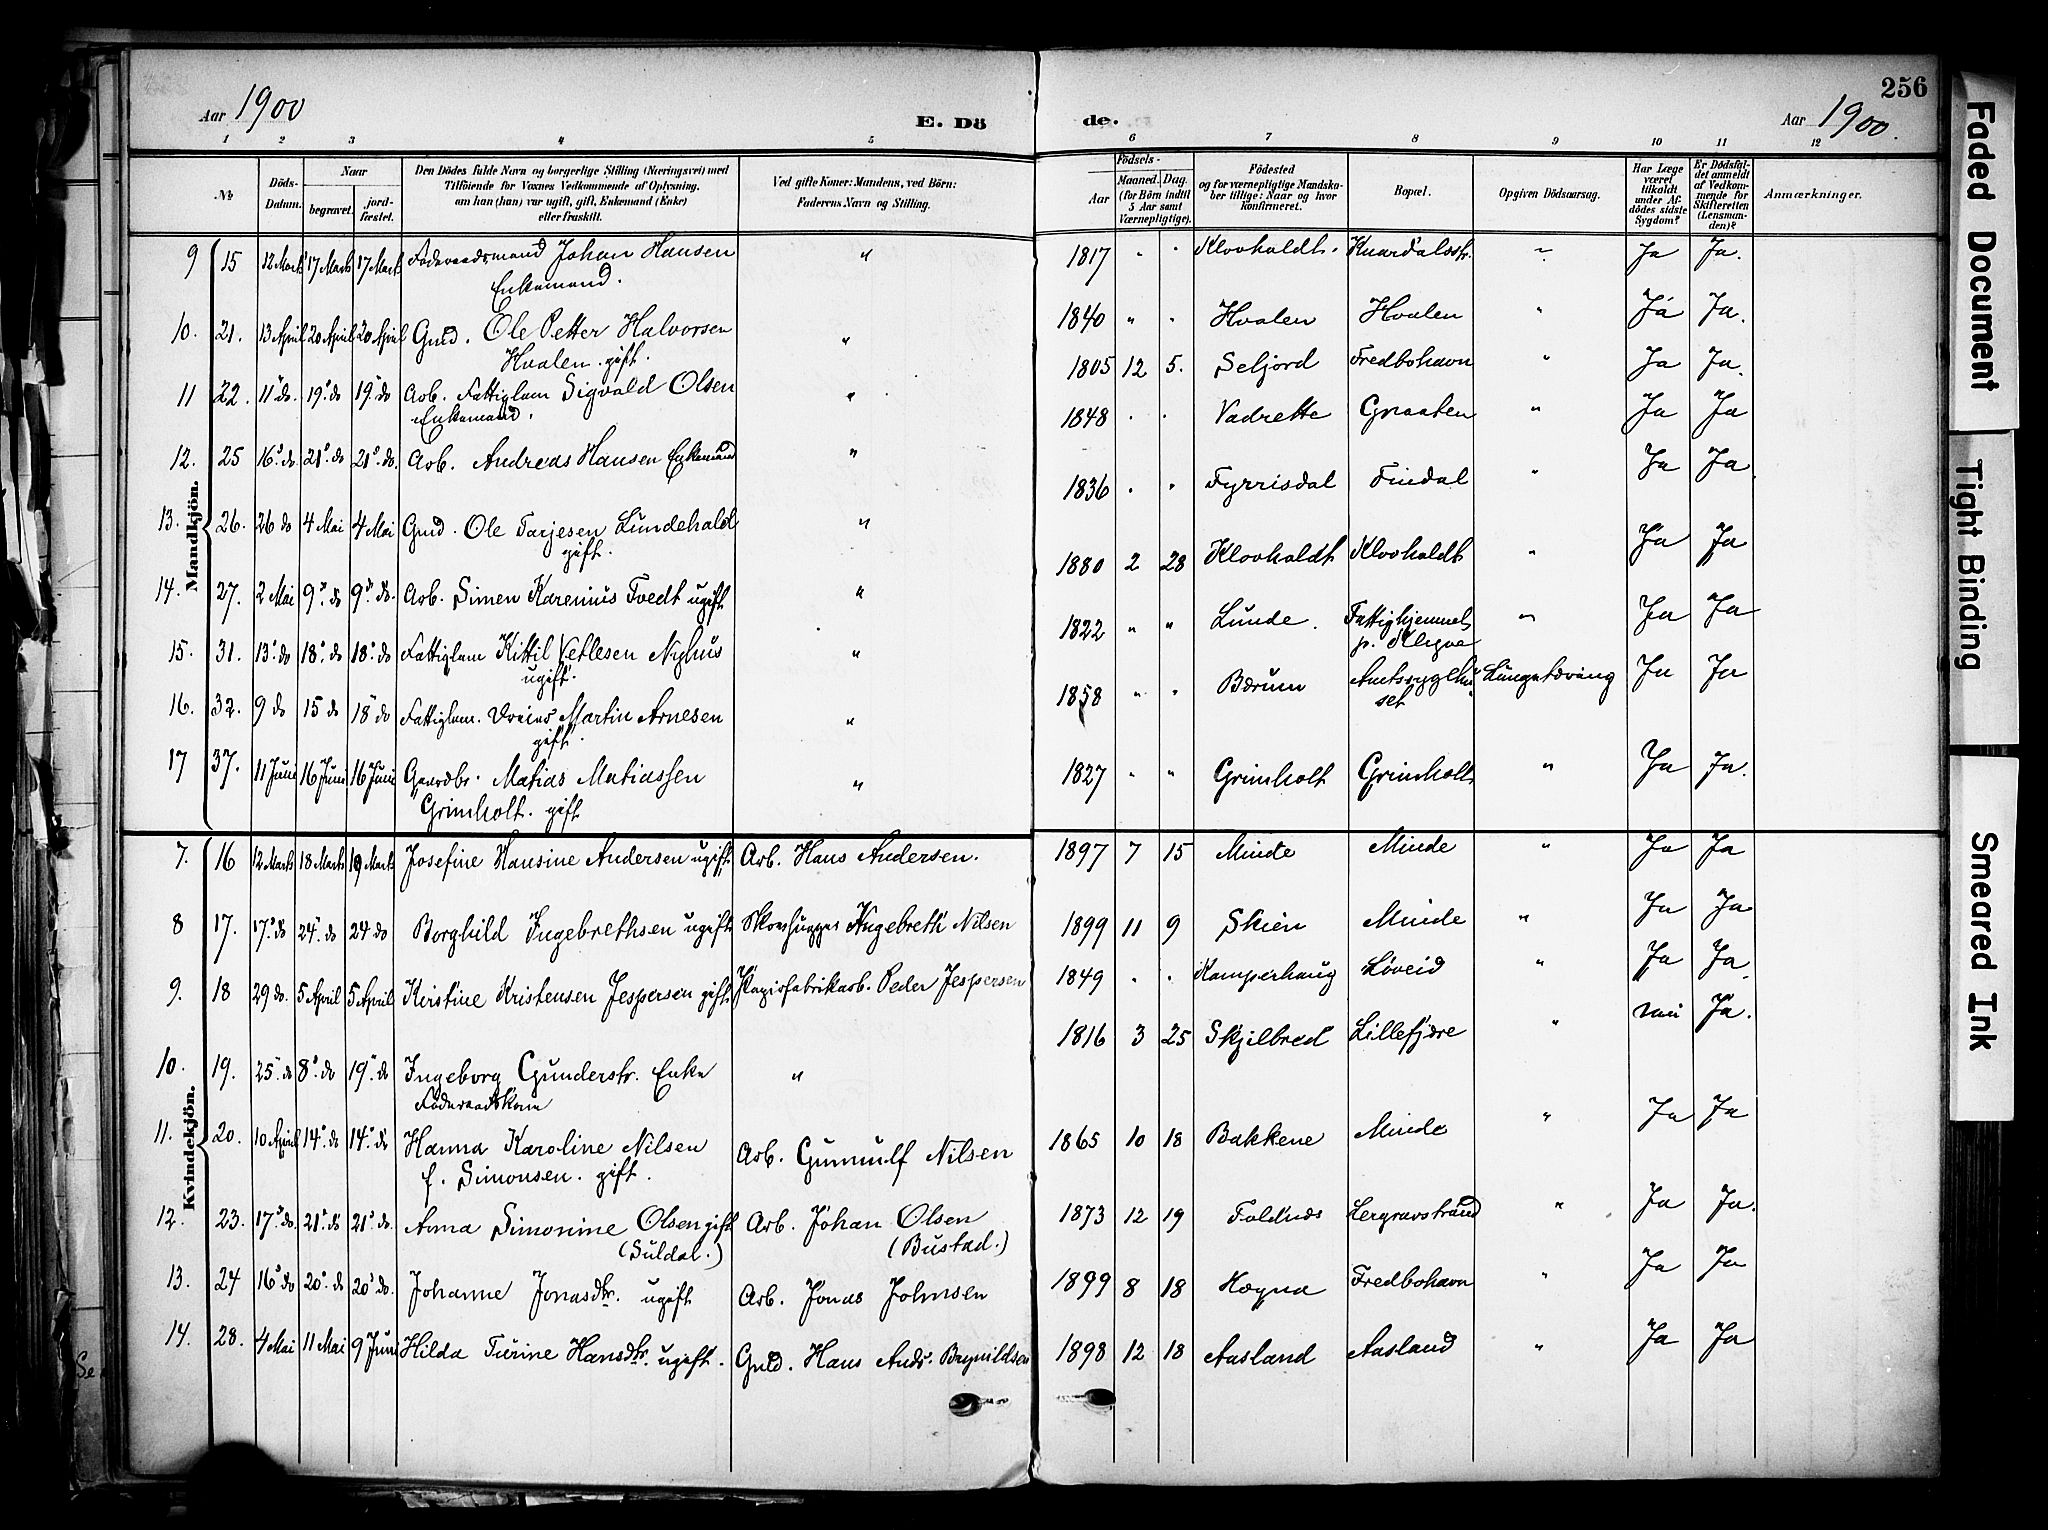 256
Aar 1900
E. Dö
de.
Aar 1900.
1 2 3 4 5 6 7 8 9 10 11 12
No
Döds-Datum.
Naar
begravet.
jord-fæstet.
Den Dödes fulde Navn og borgerlige Stilling (Næringsvei) med
Tilföiende for Voxnes Vedkommende af Oplysning,
om han (hun) var ugift, gift, Enkemand (Enke)
eller fraskilt.
Ved gifte Koner: Mandens, ved Börn:
Faderens Navn og Stilling.
Födsels-
Aar
Maaned. Dag.
(for Börn indtil
5 Aar samt
Værnepligtige).
Födested
og for værnepligtige Mandska-
ber tillige: Naar og hvor
konfirmeret.
Bopæl.
Opgiven Dödsaarsag.
Har Læge
været
tilkaldt
under Af-
dödes sidste
Sygdom?
Er Dödsfal-
det anmeldt
af Vedkom-
mende for
Skifteretten
(Lensman-
den)?
Anmærkninger.
Mandkjön.
9 15 12 Marts 17 Marts 17 Marts Föderaadsmand Johan Hansen " 1817 " " Klovholdt. Knardalsstr. " Ja Ja.
Enkemand.
10. 21. 13 April 20 April 20 April Grd. Ole Petter Halvorsen " 1840 " " Hvalen Hvalen " Ja Ja.
Hvalen. gift.
11 22. 11 do. 19. do 19. do Arb. Fattiglem Sigvald Olsen " 1805 12 5. Seljord Fredbohavn " Ja Ja.
Enkemand.
12. 25 16. do. 21. do 21. do. Arb. Andreas Hansen Enkemand " 1848 " " Vadrette Graaten " Ja Ja
13. 26. 26 do 4 Mai 4 Mai Grd. Ole Tarjesen Lundehald " 1836 " " Fyrrisdal Findal " Ja Ja.
gift.
14. 27. 2 Mai 9. do 9. do. Arb. Simen Karenius Tvedt ugift " 1880 2 28 Klovholdt Klovholdt " Ja Ja
15. 31. 13. do 18. do 18. do Fattiglem Kittil Vetlesen Nyhus " 1822 " " Lunde. Fattighjemmet " Ja Ja
ugift.
16. 32. 9 do 15 do 18 do Fattiglem. Martin Arnesen " 1858 " " Bærum Amtssygehu- Lungetæring Ja Ja
set
gift.
17 37. 11 Juni 16 Juni 16 Juni Gaardbr. Matias Matiassen " 1827 " " Grimholt Grimholt " Ja Ja.
Grimholt. gift
Kvindekjön.
7. 16 12 Marts 18 Marts 19 Marts Josefine Hansine Andersen ugift. Arb. Hans Andersen. 1897 7 15 Minde Minde " Ja Ja
8 17. 17. do 24. do 24 do Borghild Ingebrethsen ugift Skovhugger Ingebreth Nilsen 1899 11 9 Skien Minde " Ja Ja
9. 18 29 do. 5 April 5 April Kirstine Kristensen Jespersen gift Papirfabrikarb. Peder Jespersen 1849 " " Kamperhaug Løveid " Ja Ja.
10. 19. 25. do 8. do 19. do Ingeborg Gunderstr. Enke " 1816 3 25 Skjilbred Lillefjære " nei Ja.
Föderaadskone
11. 20. 10 April 14. do 14. do Hanna Karoline Nilsen Arb. Gunnulf Nilsen 1865 10 18 Bakkene Minde " Ja Ja
f. Simonsen. gift.
12. 23. 17. do. 21. do 21. do. Anna Simonine Olsen gift Arb. Johan Olsen 1873 12 19 Foldnæs Lergravstrand " Ja Ja.
(Suldal.) (Bustad.)
13. 24 16. do 20. do 20. do. Johanne Jonasdtr. ugift Arb. Jonas Johnsen 1899 8 18 Høgna Fredbohavn " Ja Ja
14. 28. 4 Mai 11 Mai 9 Juni Hilda Turine Hansdtr. ugift. Grd. Hans Ands. Brynildsen 1898 12 18 Aasland Aasland " Ja Ja
Faded Document
Tight Binding
Smeared Ink